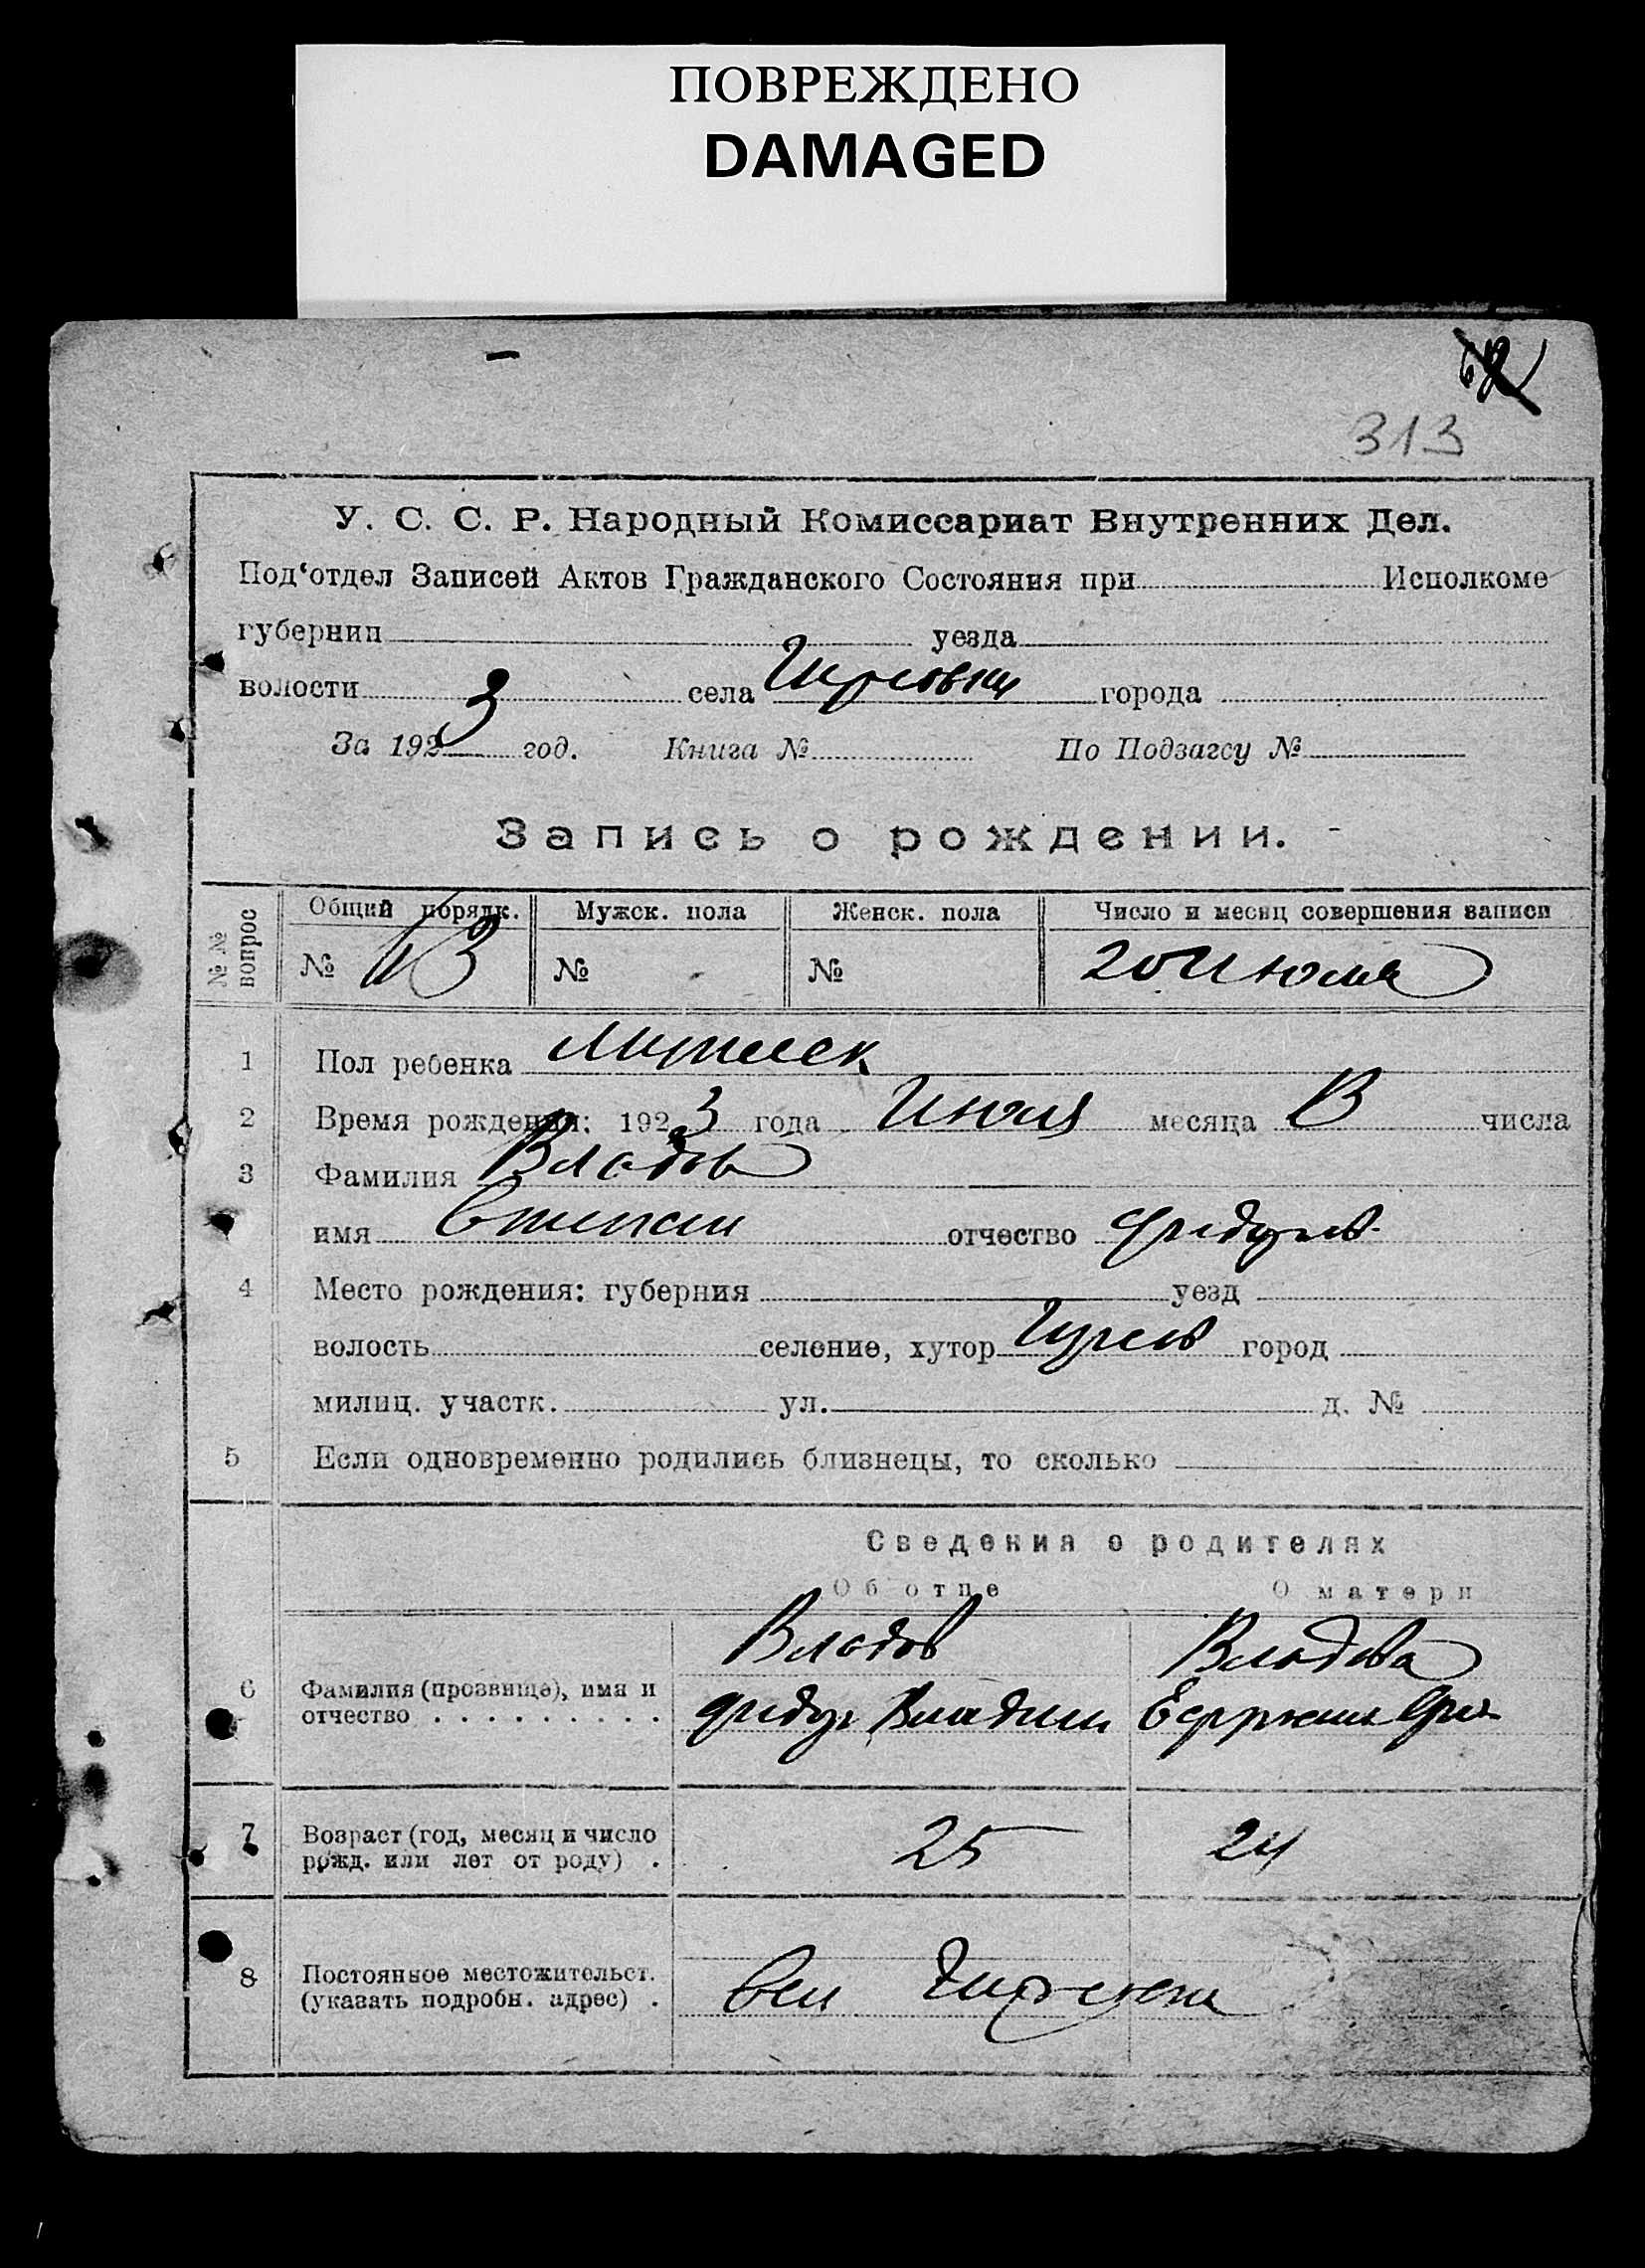 ПОВРЕЖДЕНО
DAMAGED
313
У. С. С. Р. Народный Комиссариат Внутренних Дел.
Под‘отдел Записей Актов Гражданского Состояния при Исполкоме
губернии уезда
волости села города
За 1923 год. Книга № По Подзагсу №
Запись о рождении.
№№ вопрос Общий порядк. Мужск. пола Женск. пола Число и месяц совершения записи
№ 13 № № 20 Июля
1 Пол ребенка Мужеск
2 Время рождения: 1923 года месяца числа
3 Фамилия Владов
имя Степан отчество
4 Место рождения: губерния уезд
волость селение, хутор город
милиц. участк. ул. д. №
5 Если одновременно родились близнецы, то сколько
Сведения о родителях
Об отце О матери
Владов Владова
6 Фамилия (прозвище), имя и
отчество . . . . . . . . .
7 Возраст (год, месяц и число
рожд. или лет от роду) . 25 24
8 Постоянное местожительст.
(указать подробн. адрес) .